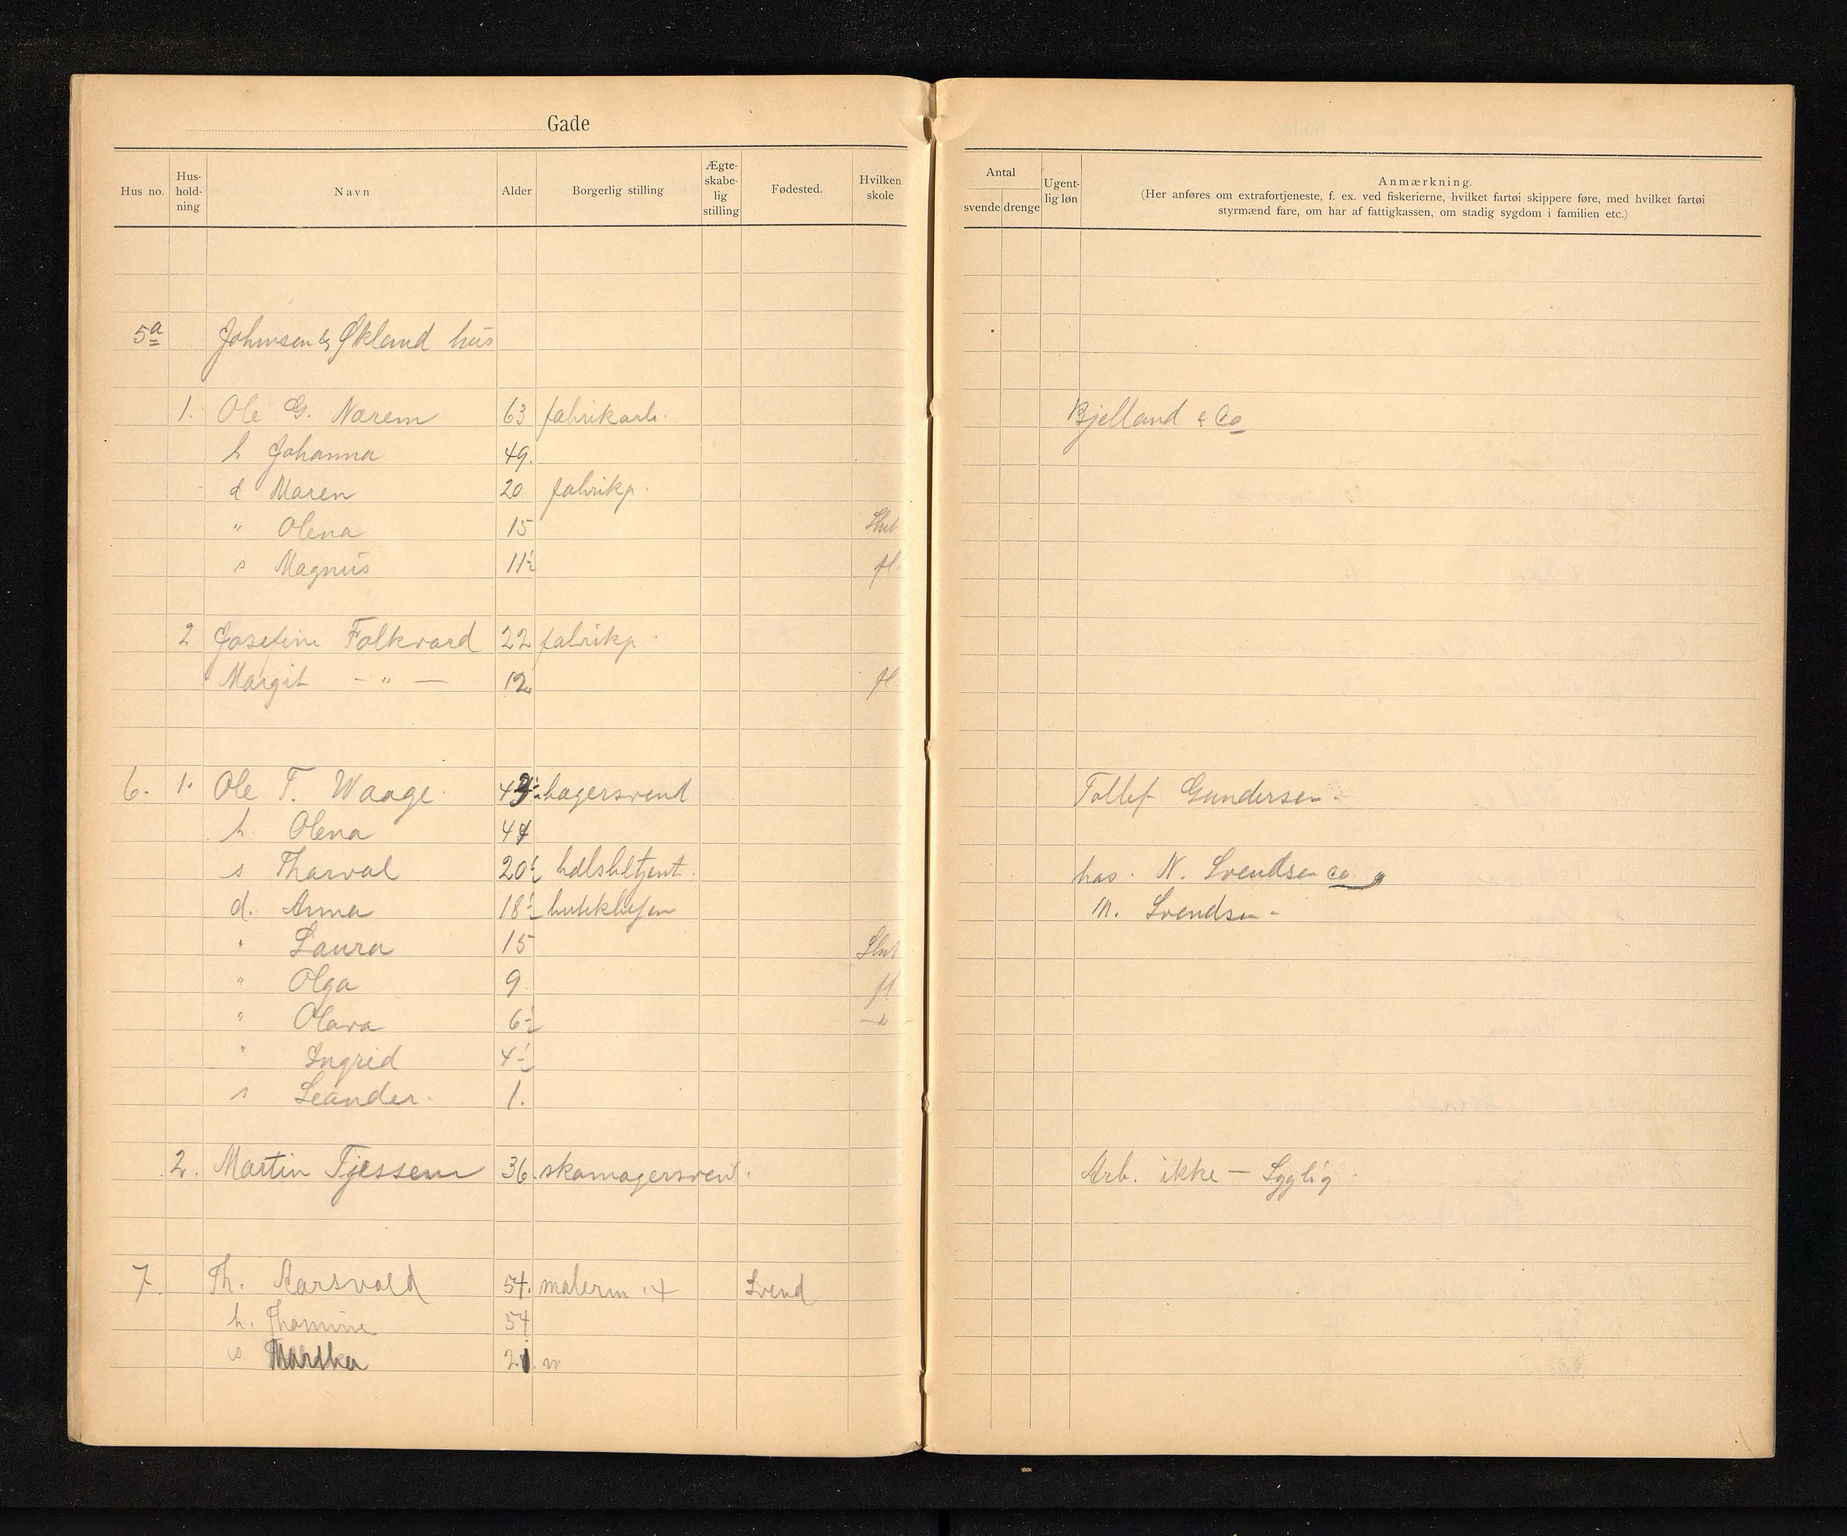 Gade
Hus no. Hus-hold-ning Navn Alder Borgerlig stilling Ægte-skabe-lig stilling Fødested. Hvilken skole Antal svende drenge Ugent-lig løn Anmærkning.
(Her anføres om extrafortjeneste, f. ex. ved fiskerierne, hvilket fartøi skippere føre, med hvilket fartøi
styrmænd fare, om har af fattigkassen, om stadig sygdom i familien etc.)
5a Johnsen & Økland hus
1. Ole G. Narem 63 fabrikarb. Bjelland & Co
h Johanna 49.
d Maren 20 fabrikp.
" Olena 15
s Magnus 11½ fl.
2 Josefine Folkvard 22 fabrikp
Margit - " - 12 fl.
6. 1. Ole T. Waage bagersvend Tollef Gundersen -
h. Olena 44
s Thorval 20½ hos. N. Svendsen Co
d. Anna 18½ M. Svendsen -
" Laura 15
" Olga 9 fl
" Olava 6½ - " -
" Ingrid 4½
s Leander. 1.
2. Martin Tjessem 36. skomagersvend. Arb. ikke - Syglig
7. Th. Aarsvold 54. malerm. + Svend
h. Thomine 54
s 21.